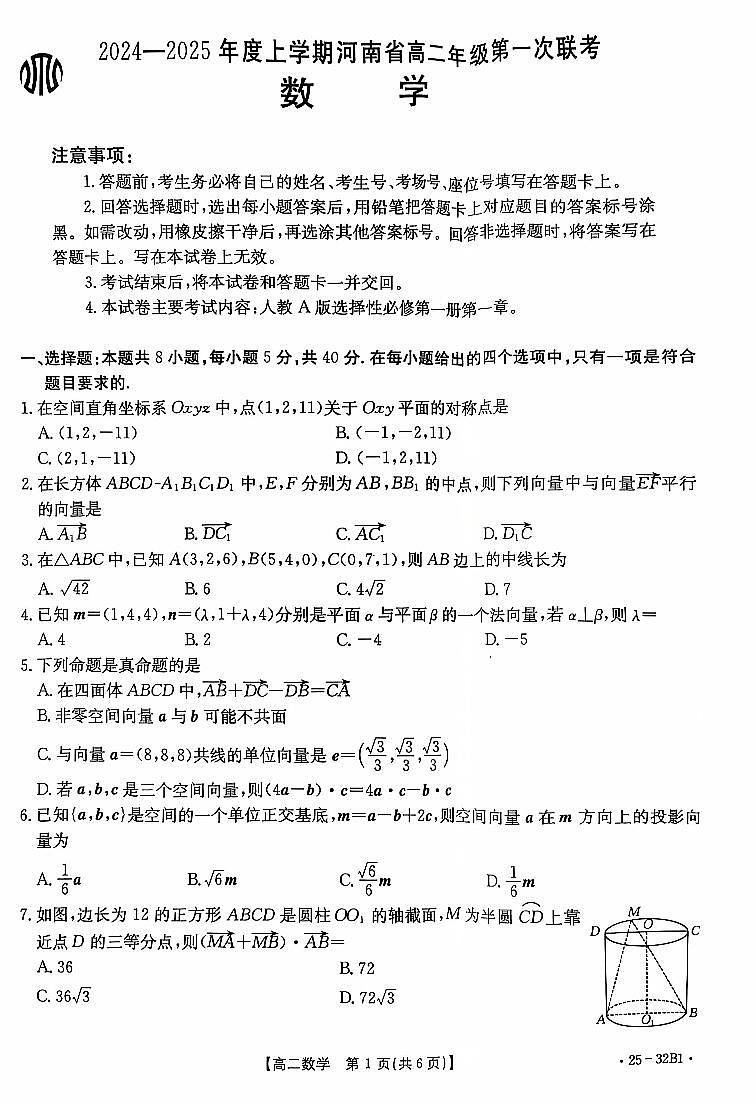 2024—2025 年度上学期河南省高二年级第一次联考
数 学
注意事项:
1. 答题前,考生务必将自己的姓名、考生号、考场号、座位号填写在答题卡上。
2. 回答选择题时,选出每小题答案后,用铅笔把答题卡上对应题目的答案标号涂
黑。如需改动,用橡皮擦干净后,再选涂其他答案标号。回答非选择题时,将答案写在
答题卡上。写在本试卷上无效。
3. 考试结束后,将本试卷和答题卡一并交回。
4. 本试卷主要考试内容:人教 A 版选择性必修第一册第一章。
一、选择题:本题共 8 小题,每小题 5 分,共 40 分. 在每小题给出的四个选项中,只有一项是符合
题目要求的.
1. 在空间直角坐标系 Oxyz 中,点(1,2,11)关于 Oxy 平面的对称点是
A. (1,2,−11) B. (−1,−2,11)
C. (2,1,−11) D. (−1,2,11)
2. 在长方体 ABCD-A₁B₁C₁D₁ 中,E,F 分别为 AB,BB₁ 的中点,则下列向量中与向量$\overrightarrow{EF}$平行
的向量是
A. $\overrightarrow{A_1B}$ B. $\overrightarrow{DC_1}$ C. $\overrightarrow{AC_1}$ D. $\overrightarrow{D_1C}$
3. 在△ABC 中,已知 A(3,2,6),B(5,4,0),C(0,7,1),则 AB 边上的中线长为
A. √42 B. 6 C. 4√2 D. 7
4. 已知 m=(1,4,4),n=(λ,1+λ,4)分别是平面 α 与平面 β 的一个法向量,若 α⊥β,则 λ=
A. 4 B. 2 C. −4 D. −5
5. 下列命题是真命题的是
A. 在四面体 ABCD 中,$\overrightarrow{AB}+\overrightarrow{DC}-\overrightarrow{DB}=\overrightarrow{CA}$
B. 非零空间向量 a 与 b 可能不共面
C. 与向量 a=(8,8,8)共线的单位向量是 e=$\left(\frac{\sqrt{3}}{3},\frac{\sqrt{3}}{3},\frac{\sqrt{3}}{3}\right)$
D. 若 a,b,c 是三个空间向量,则(4a−b)・c=4a・c−b・c
6. 已知{a,b,c}是空间的一个单位正交基底,m=a−b+2c,则空间向量 a 在 m 方向上的投影向
量为
A. $\frac{1}{6}$a B. √6m C. $\frac{\sqrt{6}}{6}$m D. $\frac{1}{6}$m
7. 如图,边长为 12 的正方形 ABCD 是圆柱 OO₁ 的轴截面,M 为半圆 $\overset{\frown}{CD}$上靠
近点 D 的三等分点,则($\overrightarrow{MA}+\overrightarrow{MB}$)・$\overrightarrow{AB}$=
A. 36 B. 72
C. 36√3 D. 72√3
M
D O C
A O₁ B
【高二数学 第 1 页(共 6 页)】
・25−32B1・